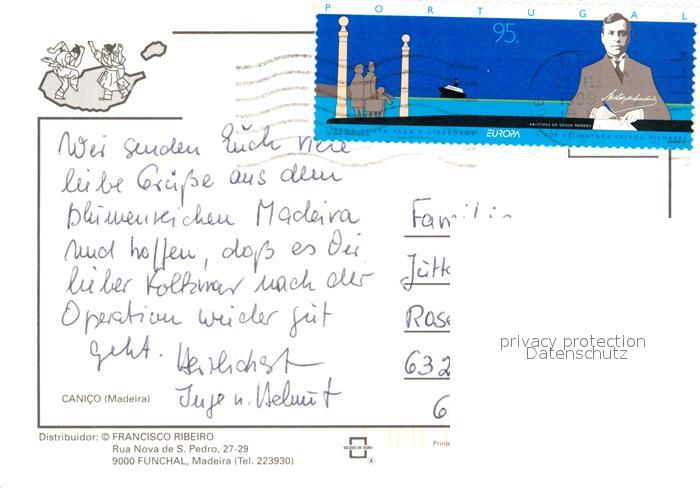 PORTUGAL
95.
ARISTIDES DE SOUSA MENDES
LISBOA PORTA PARA A LIBERDADE
EUROPA
A SUA ASSINATURA SALVOU MILHARES
Wir senden Euch viele
liebe Grüße aus dem
blumenreichen Madeira
und hoffen, daß es Dir,
lieber Volkmar nach der
Operation wieder gut
geht. Herzlichst
Inge u. Helmut
Familie
Jutta
Rose
632
6
privacy protection
Datenschutz
CANIÇO (Madeira)
Distribuidor: © FRANCISCO RIBEIRO
Rua Nova de S. Pedro, 27-29
9000 FUNCHAL, Madeira (Tel. 223930)
ESCUDO DE OURO
Printe